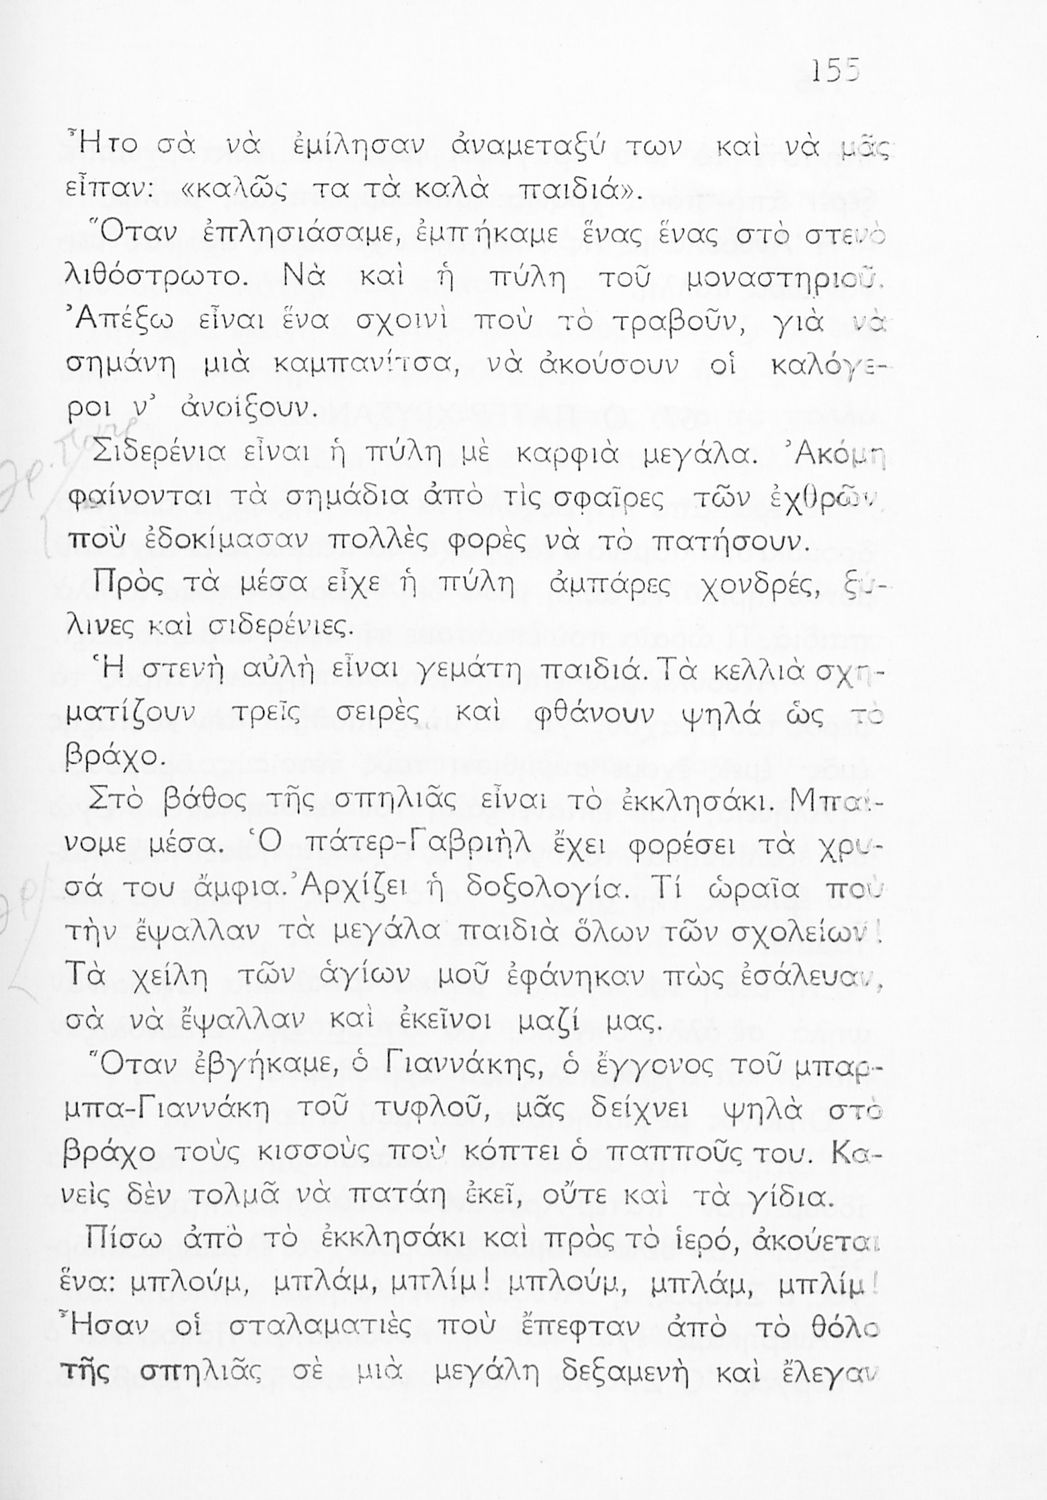 155
Ἦτο σὰ νὰ ἐμίλησαν ἀναμεταξύ των καὶ νὰ μᾶς
εἶπαν: «καλῶς τα τὰ καλὰ παιδιά».
Ὅταν ἐπλησιάσαμε, ἐμπήκαμε ἕνας ἕνας στὸ στενὸ
λιθόστρωτο. Νὰ καὶ ἡ πύλη τοῦ μοναστηριοῦ.
Ἀπέξω εἶναι ἕνα σχοινὶ ποὺ τὸ τραβοῦν, γιὰ νὰ
σημάνη μιὰ καμπανίτσα, νὰ ἀκούσουν οἱ καλόγε-
ροι ν’ ἀνοίξουν.
Σιδερένια εἶναι ἡ πύλη μὲ καρφιὰ μεγάλα. Ἀκόμη
φαίνονται τὰ σημάδια ἀπὸ τὶς σφαῖρες τῶν ἐχθρῶν
ποὺ ἐδοκίμασαν πολλὲς φορὲς νὰ τὸ πατήσουν.
Πρὸς τὰ μέσα εἶχε ἡ πύλη ἀμπάρες χονδρές, ξύ-
λινες καὶ σιδερένιες.
Ἡ στενὴ αὐλὴ εἶναι γεμάτη παιδιά. Τὰ κελλιὰ σχη-
ματίζουν τρεῖς σειρὲς καὶ φθάνουν ψηλά ὡς τὸ
βράχο.
Στὸ βάθος τῆς σπηλιᾶς εἶναι τὸ ἐκκλησάκι. Μπαί-
νομε μέσα. Ὁ πάτερ-Γαβριὴλ ἔχει φορέσει τὰ χρυ-
σά του ἄμφια. Ἀρχίζει ἡ δοξολογία. Τί ὡραῖα ποὺ
τὴν ἔψαλλαν τὰ μεγάλα παιδιὰ ὅλων τῶν σχολείων!
Τὰ χείλη τῶν ἁγίων μοῦ ἐφάνηκαν πὼς ἐσάλευαν,
σὰ νὰ ἔψαλλαν καὶ ἐκεῖνοι μαζί μας.
Ὅταν ἐβγήκαμε, ὁ Γιαννάκης, ὁ ἔγγονος τοῦ μπαρ-
μπα-Γιαννάκη τοῦ τυφλοῦ, μᾶς δείχνει ψηλὰ στὸ
βράχο τοὺς κισσοὺς ποὺ κόπτει ὁ παπποῦς του. Κα-
νεὶς δὲν τολμᾶ νὰ πατάη ἐκεῖ, οὔτε καὶ τὰ γίδια.
Πίσω ἀπὸ τὸ ἐκκλησάκι καὶ πρὸς τὸ ἱερό, ἀκούεται
ἕνα: μπλούμ, μπλάμ, μπλίμ! μπλούμ, μπλάμ, μπλίμ!
Ἦσαν οἱ σταλαματιὲς ποὺ ἔπεφταν ἀπὸ τὸ θόλο
τῆς σπηλιᾶς σὲ μιὰ μεγάλη δεξαμενὴ καὶ ἔλεγαν